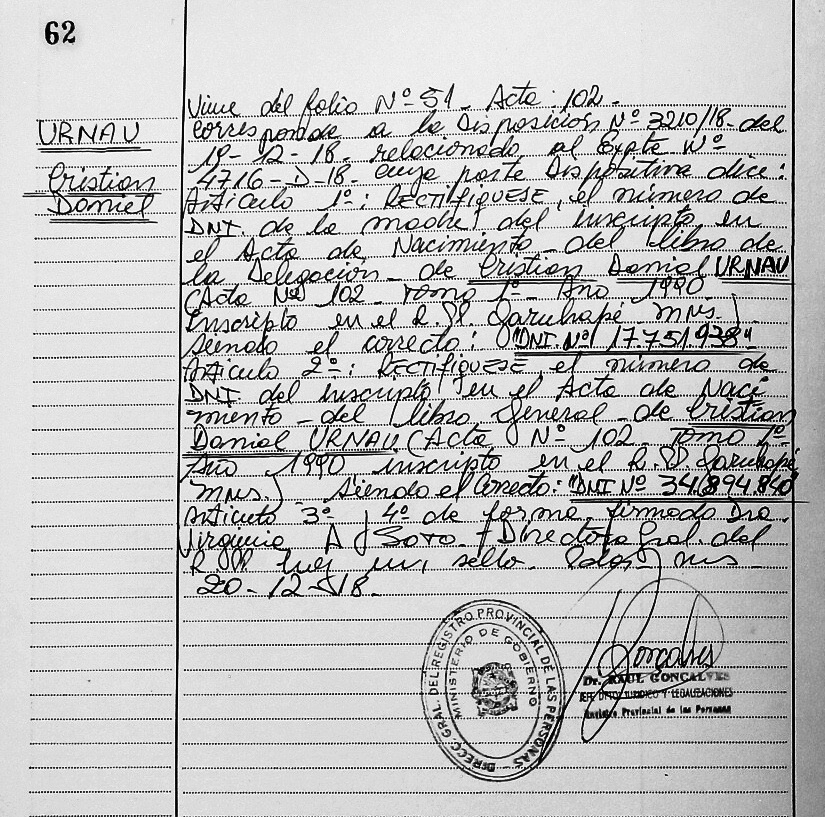 62
URNAU
Cristian
Daniel
Viene del folio Nº 51 - Acta: 102 -
Corresponde a la Disposición Nº 3210/18 - del
19-12-18 - relacionado al Expte Nº
4716-D-18 - cuya parte Dispositiva dice:
Artículo 1º: RECTIFIQUESE, el número de
DNI de la madre del inscripto en
el Acta de Nacimiento - del libro de
la Delegación - de Cristian Daniel URNAU
(Acta Nº 102 - Tomo 1º - Año 1990
Inscripto en el R.P. Garuhapé mns.)
siendo el correcto: "DNI Nº 17.751.938"
Artículo 2º: RECTIFIQUESE, el número de
DNI del inscripto en el Acta de Naci
miento - del libro General - de Cristian
Daniel URNAU (Acta Nº 102 - Tomo 1º -
Año 1990 inscripto en el R.P Garuhapé
mns.) siendo el Correcto: "DNI Nº 34.894.840
Artículo 3º 4º de forma firmado Dra.
Virginia A Soto - Directora Gral. del
R.P. hay un sello. Pdas mns -
20-12-018 -
DIRECC. GRAL. DEL REGISTRO PROVINCIAL DE LAS PERSONAS
MINISTERIO DE GOBIERNO
Gonçalves
Dr. RAUL GONCALVES
JEFE DPTO. JURIDICO Y LEGALIZACIONES
Registro Provincial de las Personas